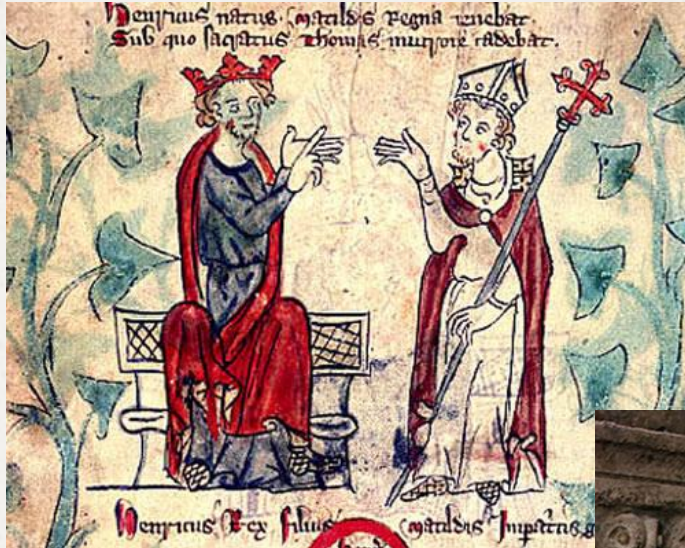 Henricus natus Matildis Regna tenebat
Sub quo sacratus Thomas mucrone cadebat.
Henricus Rex filius Matildis